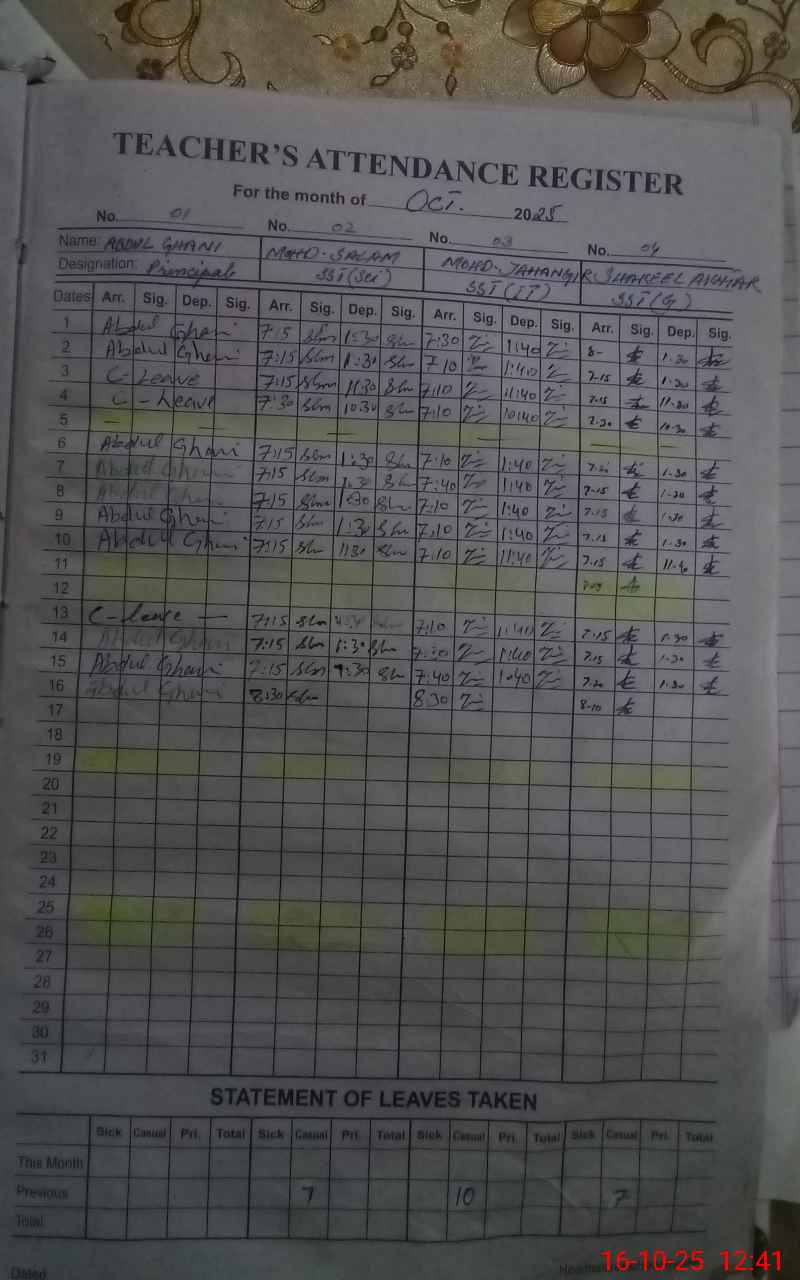 TEACHER'S ATTENDANCE REGISTER
For the month of OCT. 2025
No. 01 No. 02 No. 03 No. 04
Name: ABDUL GHANI MOHD-SALAM MOHD-JAHANGIR SHAKEEL AKHTAR
Designation: Principal SST(Sci) SST(IT) SST(G)
Dates Arr. Sig. Dep. Sig. Arr. Sig. Dep. Sig. Arr. Sig. Dep. Sig. Arr. Sig. Dep. Sig.
1 Abdul Ghani 7:15 Slm 1:30 Slm 7:30 1:40 8- 1-30
2 Abdul Ghani 7:15 Slm 1:30 Slm 7:10 1:40 7-15 1-30
3 C-Leave 7:15 Slm 11:30 Slm 7:10 11:40 7-15 11-30
4 C-Leave 7:30 Slm 10:30 Slm 7:10 10:40 7-30 10-30
5 — — — — —
6 Abdul Ghani 7:15 Slm 1:30 Slm 7:10 1:40 1-30
7 Abdul Ghani 7:15 Slm 1:30 Slm 7:40 1:40 7-15 1-30
8 Abdul Ghani 7:15 Slm 1:30 Slm 7:10 1:40 7-15 1-30
9 Abdul Ghani 7:15 Slm 1:30 Slm 7:10 1:40 7-15 1-30
10 Abdul Ghani 7:15 Slm 11:30 Slm 7:10 11:40 7-15 11-40
11
12
13 C-Leave — 7:15 Slm 7:10 1:40 7-15 1-30
14 Abdul Ghani 7:15 Slm 1:30 Slm 7:30 1:40 7-15 1-30
15 Abdul Ghani 7:15 Slm 1:30 Slm 7:40 1:40 7-20 1-30
16 Abdul Ghani 8:30 Slm 8:30 8-10
17
18
19
20
21
22
23
24
25
26
27
28
29
30
31
STATEMENT OF LEAVES TAKEN
Sick Casual Pri. Total Sick Casual Pri. Total Sick Casual Pri. Total Sick Casual Pri. Total
This Month
Previous 7 10 7
Total
Dated
16-10-25 12:41